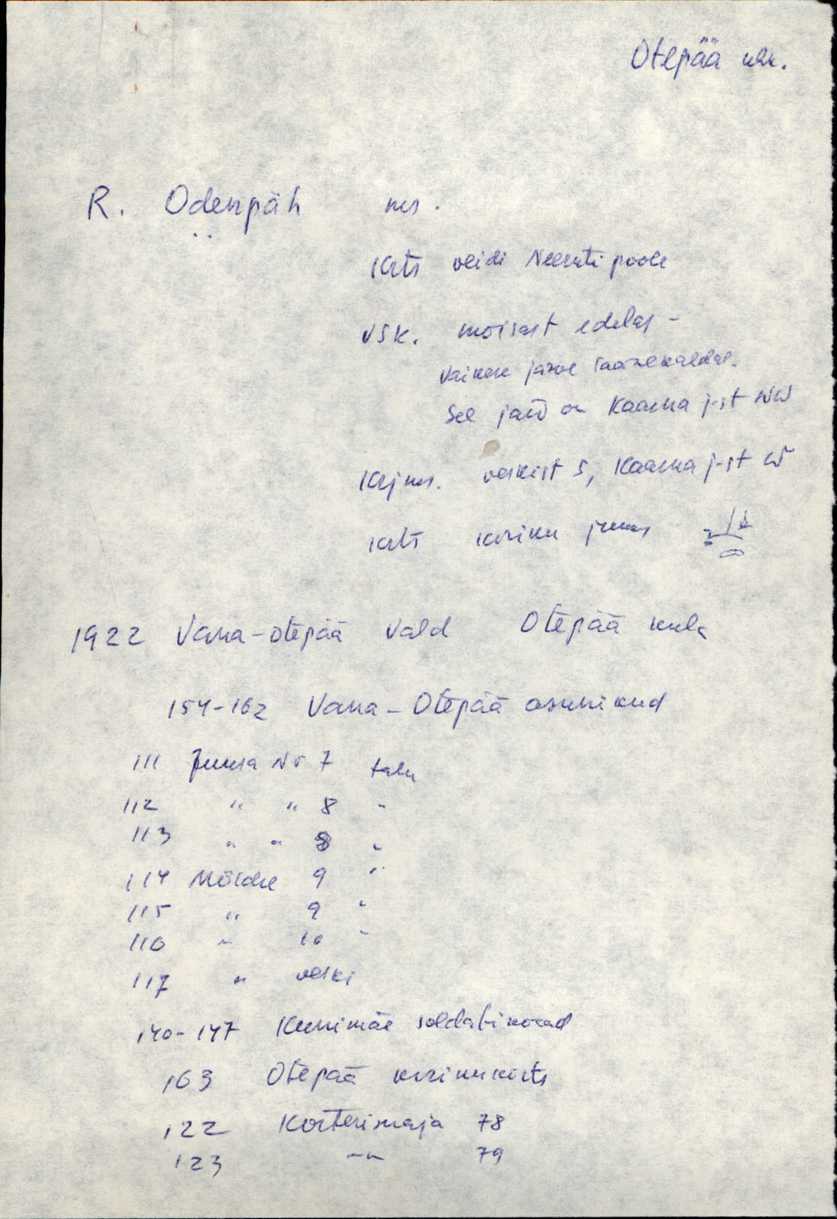 Otepää
R. Odenpäh ms.
krts veidi Neeruti poole
vsk. mõisast edelas -
väikese järve saarekaldal.
See järv on Kaarna j-st NW
kjms. veskist S, Kaarna j-st W
krts kiriku juures
1922 Vana-Otepää vald Otepää küla
154-162 Vana-Otepää asunikud
111 Juusa No 7 talu
112 " " 8 "
113 " " 8 "
114 Mõrdre 9 "
115 " 9 "
116 " 10 "
117 " veski
140-147 Kunimäe soldatikohad
163 Otepää kirikukõrts
122 Korterimaja 78
123 -"- 79